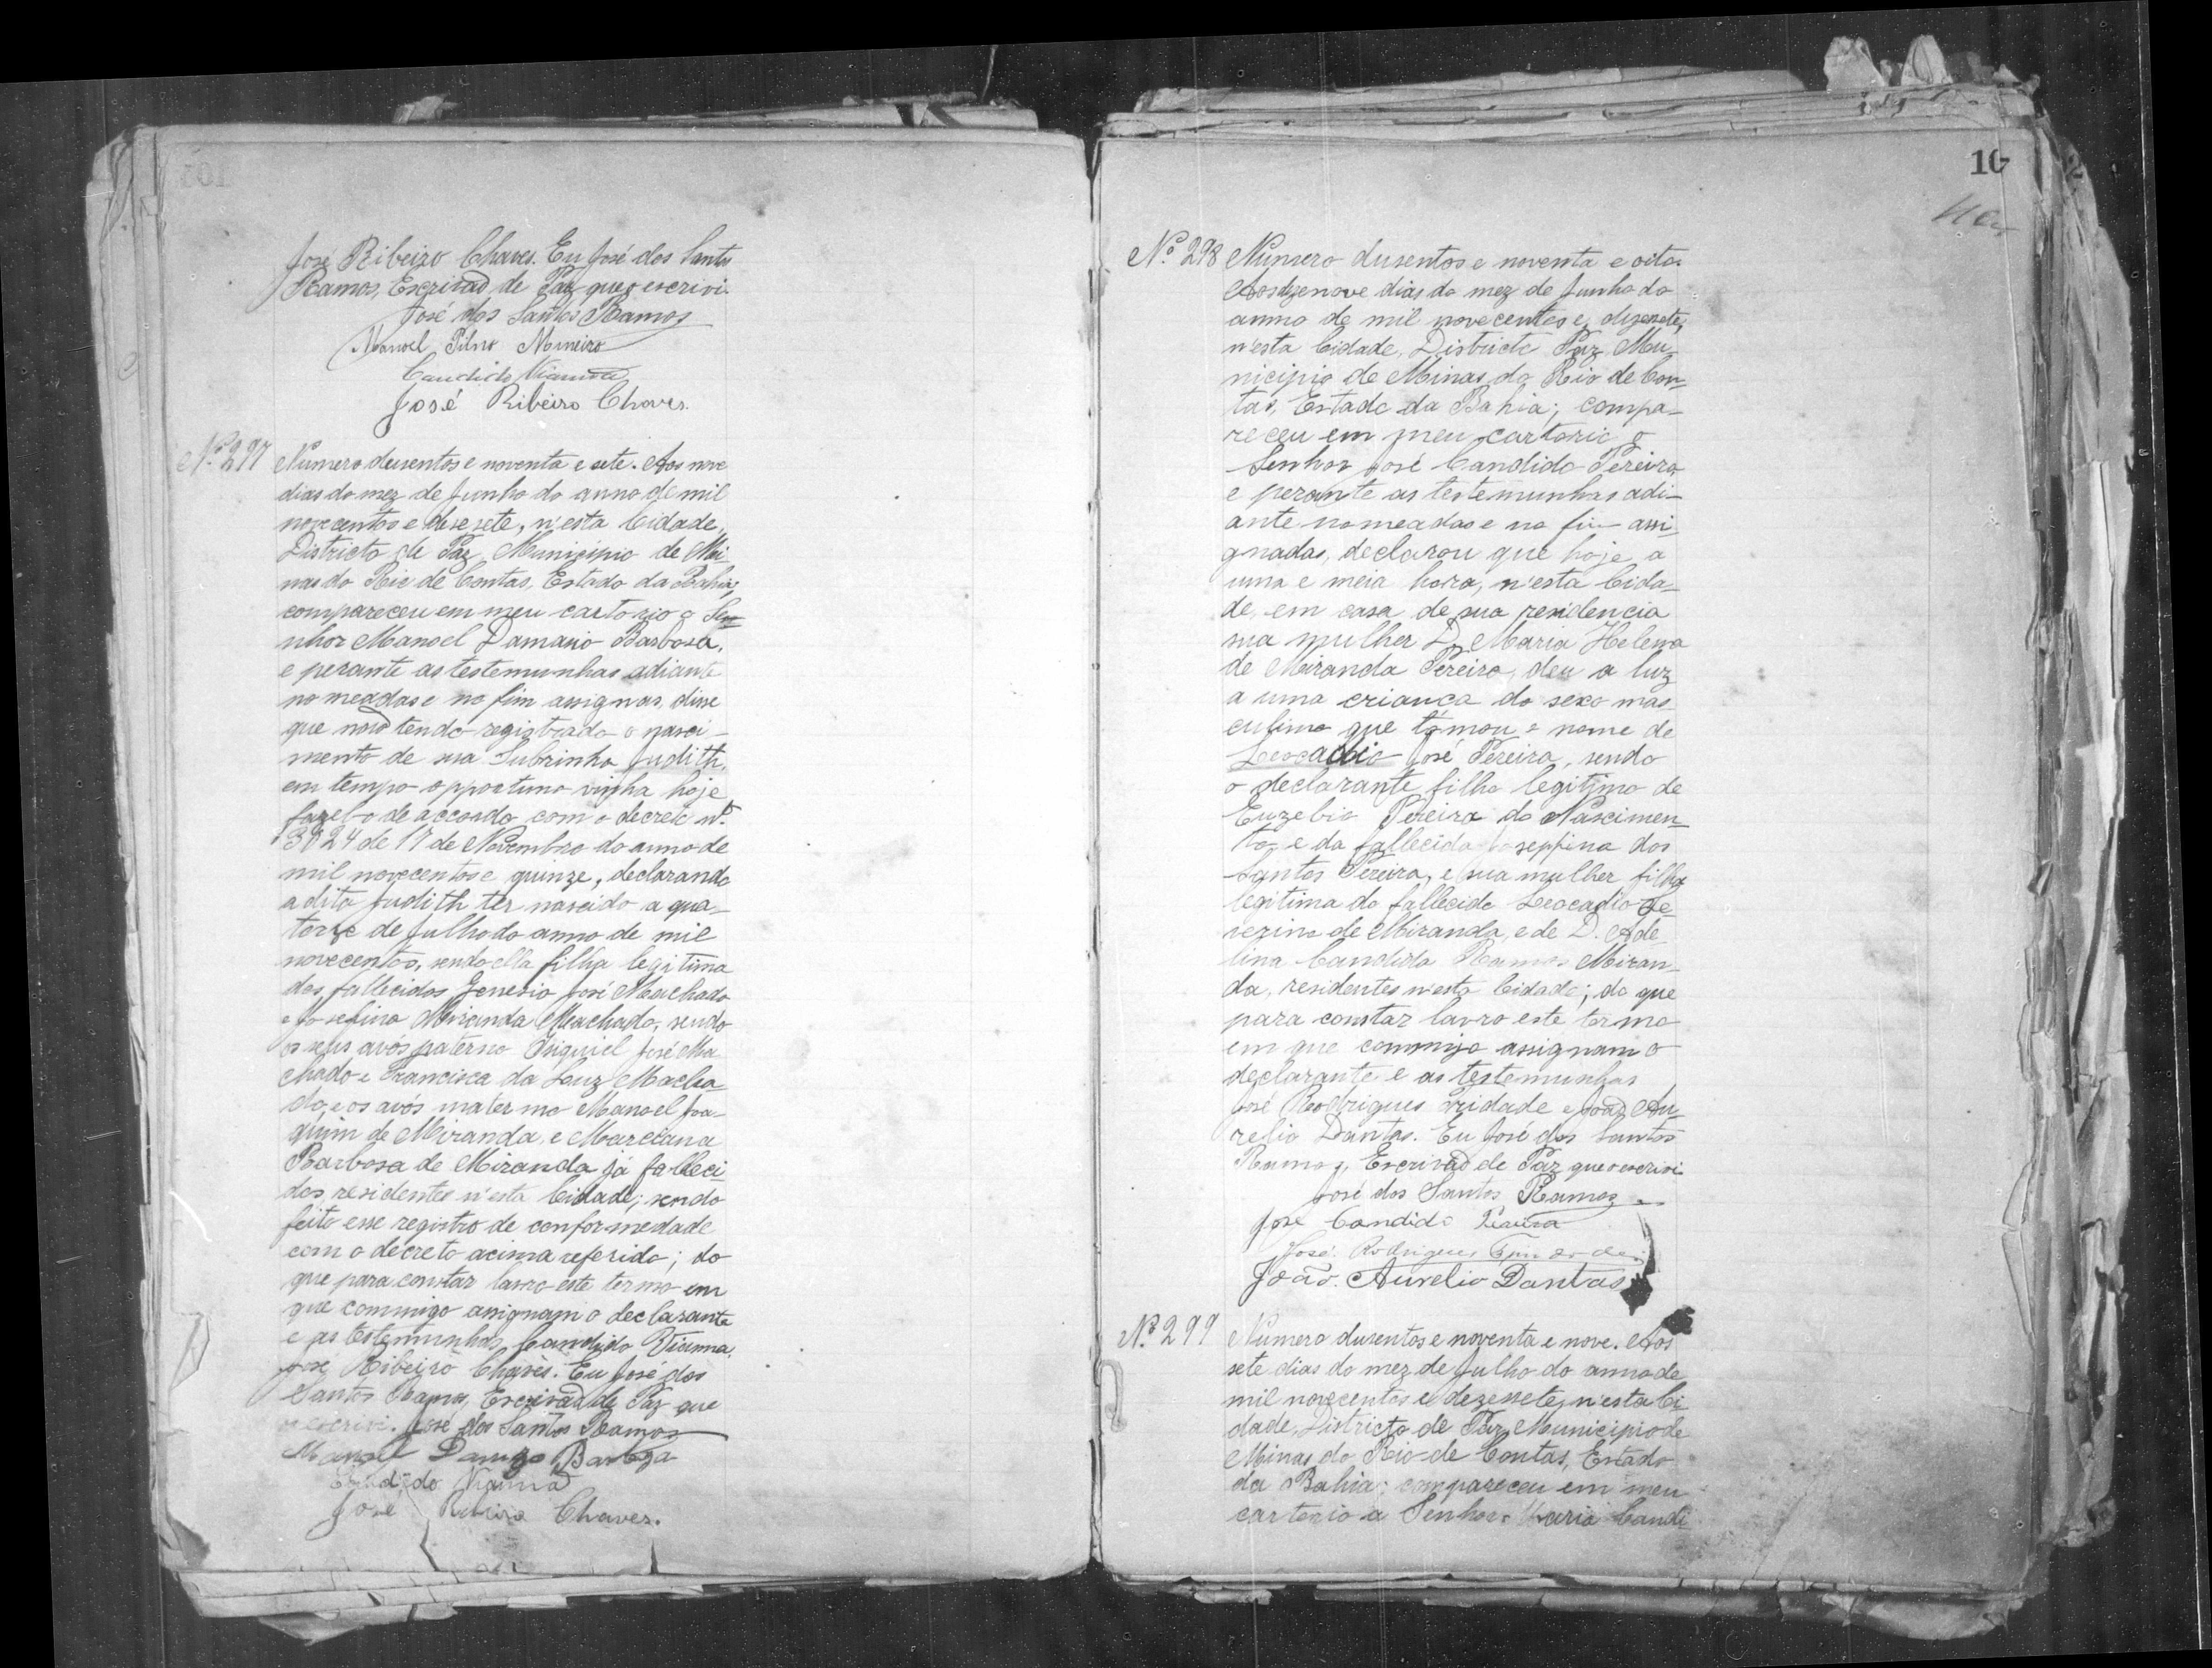 José Ribeiro Chaves. Eu José dos Santos
Ramos, Escrivaõ de Paz que o escrivi.
José dos Santos Ramos
Manoel
Candido Vianna
José Ribeiro Chaves.
Nº 297 Numero dusentos e noventa e sete. Aos nove
dias do mez de Junho do anno de mil
novecentos e desesete, n'esta Cidade,
Districto de Paz, Municipio de Mi-
nas do Rio de Contas, Estado da Bahia;
compareceu em meu cartorio o Se-
nhor Manoel Damasio Barbosa,
e perante as testemunhas adiante
nomeadas e no fim assignas, disse
que naõ tendo registrado o nasci-
mento de sua Subrinha Judith,
em tempo opportuno vinha hoje
fazel-o de accordo com o decreto nº
3024 de 17 de Novembro do anno de
mil novecentos e quinze, declarando
a dita Judith ter nascido a qua-
torze de Julho do anno de mil
novecentos, sendo ella filha legitima
dos fallecidos Genesio José Machado
e Josefina Miranda Machado, sendo
os seus avós paterno José Ma
chado e Francisca da Luz Macha
do, e os avós materno Manoel Joa-
quim de Miranda, e Marciana
Barbosa de Miranda já falleci-
dos, residentes n'esta Cidade; sendo
feito esse registro de conformedade
com o decreto acima referido; do
que para constar lavro este termo em
que commigo assignam o declarante
e as testemunhas, Candido Vianna,
José Ribeiro Chaves. Eu José dos
Santos Ramos, Escrivaõ de Paz que
o escrivi. José dos Santos Ramos
Manoel Damasio Barboza
Candido Vianna
José Ribeiro Chaves.
10
Nº 298 Numero dusentos e noventa e oito.
Aos dezenove dias do mez de Junho do
anno de mil novecentos e dezesete,
n'esta Cidade, Districto Paz, Mu-
nicipio de Minas do Rio de Con-
tas, Estado da Bahia; compa-
receu em meu cartorio o
Senhor José Candido Pereira,
e perante as testemunhas adi-
ante nomeadas e no fim assi-
gnadas, declarou que hoje, a
uma e meia hora, n'esta Cida-
de, em casa de sua residencia
sua mulher D. Maria Helena
de Miranda Pereira, deu a luz
a uma criança do sexo mas-
culino que tomou o nome de
Leocadio José Pereira, sendo
o declarante filho legitimo de
Euzebio Pereira do Nascimen-
to e da fallecida Josephina dos
Santos Pereira, e sua mulher filha
legitima do fallecido Leocadio
de Miranda, e de D. Ade-
lina Candida Ramos Miran-
da, residentes n'esta Cidade; do que
para constar lavro este termo
em que commigo assignam o
declarante e as testemunhas
José Rodrigues Tridade e Joaõ Au-
relio Dantas. Eu José dos Santos
Ramos, Escrivaõ de Paz que o escrivi
José dos Santos Ramos
José Candido Pereira
José Rodrigues
João Aurelio Dantas
Nº 299 Numero dusentos e noventa e nove. Aos
sete dias do mez de Julho do anno de
mil novecentos e dezesete, n'esta Ci
dade, Districto de Paz, Municipio de
Minas do Rio de Contas, Estado
da Bahia; compareceu em meu
cartorio a Senhora Maria Candi